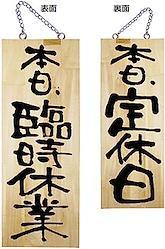 表面
裏面
本日、臨時休業
本日、定休日